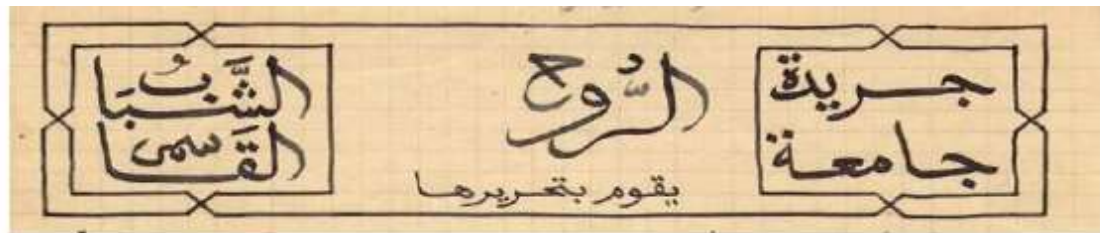 جريدة
جامعة
الرُّوح
يقوم بتحريرها
الشَّبَابُ
القَاسمى